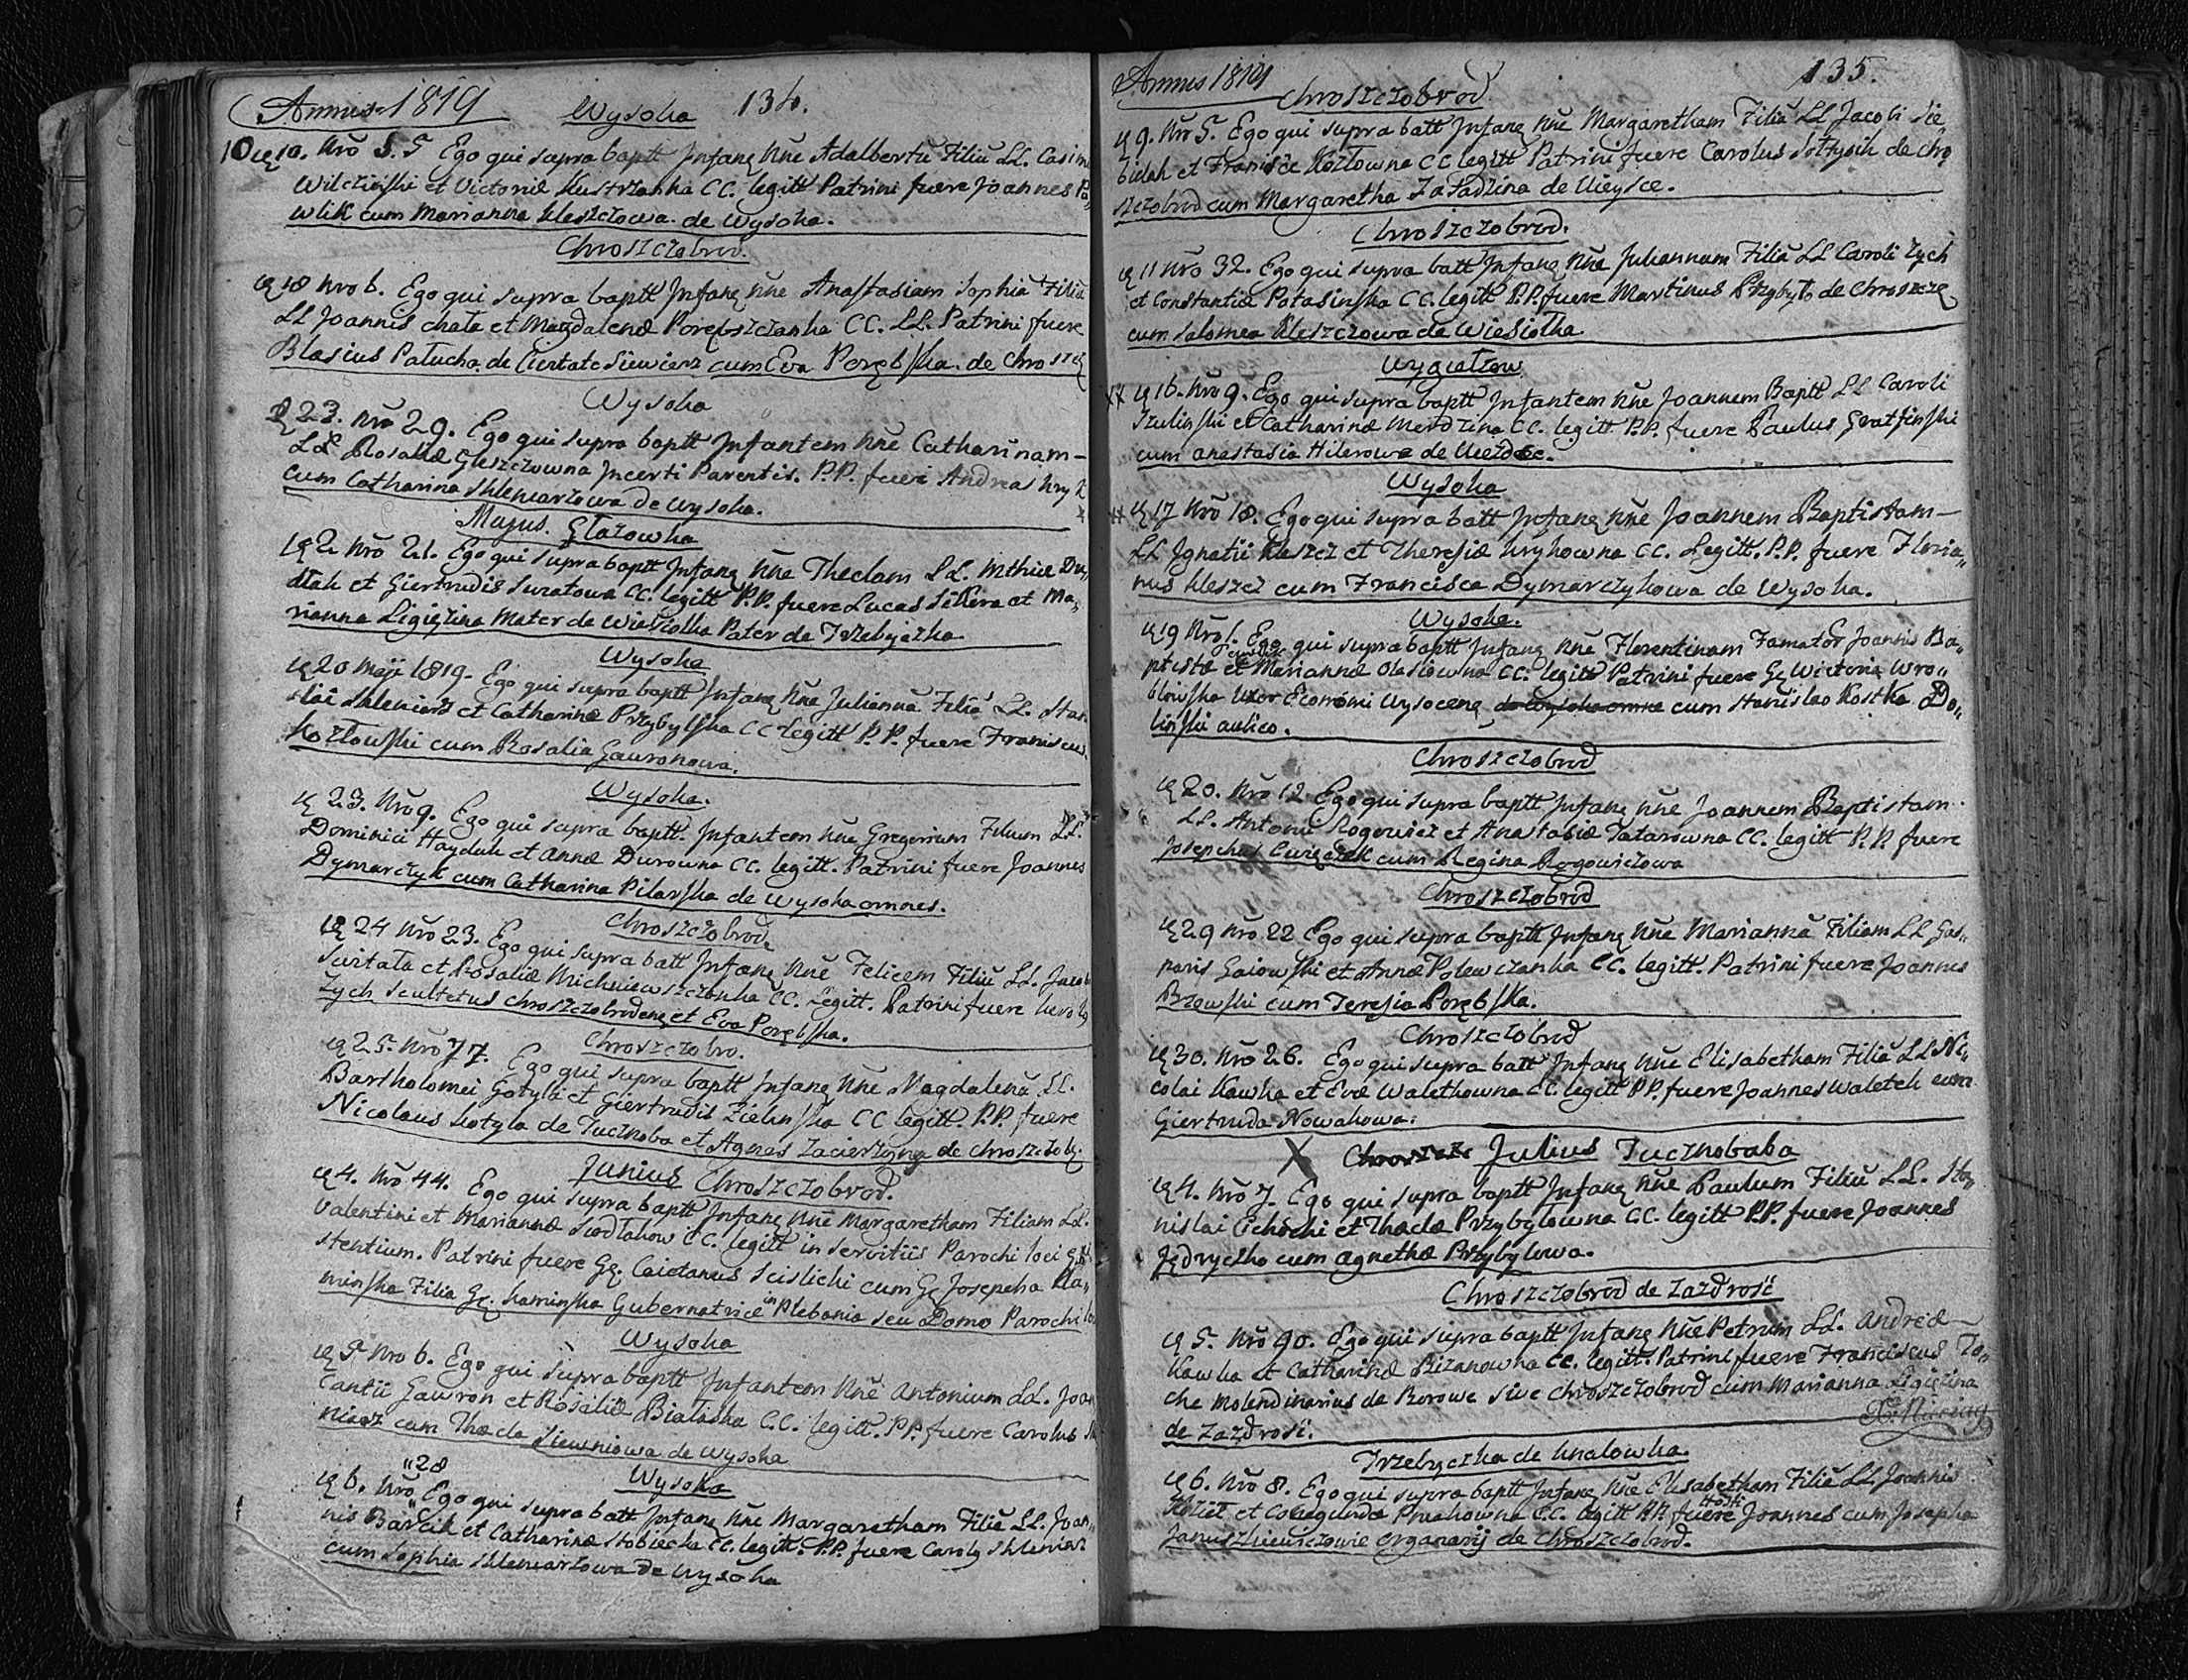 Annus 1819 Wysoka 134.
10 10. Nro 5.5 Ego qui supra baptt Infanę Nne Adalbertū Filiū LL. Casimi
Wilczinski et Victoriæ Kustrzanka CC. legitt Patrini fuere Joannes Pa„
wlik cum Marianna Kleszczowa de Wysoka.
Chroszczobrod.
18 Nro 6. Ego qui supra baptt Infanę Nne Anastasiam Sophiā Filiā
LL Joannis Chata et Magdalenæ Porębszczanka CC. LL. Patrini fuere
Blasius Patucha de Civitate Siewierz cum Eva Porębska de Chroszcz
Wysoka
23. Nro 29. Ego qui supra baptt Infantem Nne Catharinam –
LL Rosaliæ Gleszczowna Incerti Parentis. P.P. fuere Andrea Kryk
cum Catharina Sklemarzowa de Wysoka.
Majus. Głazowka
2 Nro 21. Ego qui supra baptt Infanę Nne Theclam LL. Mthiæ Du„
dtak et Giertrudis Suratowa CC. legitt P.P. fuere Lucas Sikkera et Ma„
rianna Ligięzina Mater de Wiesiołka Pater de Trzebyczka
Wysoka
20 Maji 1819. Ego qui supra baptt Infanę Nne Juliannā Filiā LL. Stan
slai Skleniarz et Catharinæ Przybylska CC Legitt P.P. fuere Franiscus
Kozłowski cum Rosalia Gawronowa.
Wysoka.
23. Nro 9. Ego qui supra baptt. Infantem Nne Gregorium Filium LL.
Dominici Hayduk et Annæ Durowna CC. legitt. Patrini fuere Joannes
Dymarczyk cum Catharina Pilarska de Wysoka omnes.
Chroszczobrod.
24 Nro 23. Ego qui supra batt Infanę Nne Felicem Filiū LL. Jacob
Surtata et Rosaliæ Michniewszczonka CC. Legitt. Patrini fuere
Zych Scultetus Chroszczobrodenę et Eva Porębska.
Chroszczobro.
25. Nro 77. Ego qui supra baptt Infanę Nne Magdalenā LL.
Bartholomei Gotyla et Giertrudis Zielinska CC legitt. P.P. fuere
Nicolaus Kotyla de Tucznoba et Agnes Zacierzyna de Chroszczob.
Junius Chroszczobrod.
4. Nro 44. Ego qui supra baptt Infanę Nne Margaretham Filiam LL.
Valentini et Mariannæ Siodlakow CC. legitt in Servitiis Parochi loci
stentium. Patrini fuere Gę. Caietanus Scislicki cum Gę Josepeha Ka„
minska Filia Gę. Kaminska Gubernatrice in Plebania seu Domo Parochi
Wysoka
5 Nro 6. Ego qui supra baptt Infantem Nne Antonium LL. Joan
Cantii Gawron et Rosaliæ Bialaska CC. legitt. P.P. fuere Carolus
niarz cum Thæcla Siewniowa de Wysoka
Wysoka
6. Nro „28 Ego qui supra batt Infanę Nne Margaretham Filiā LL. Joan„
nis Barcik et Catharinæ Stobiecka CC. legitt. P.P. fuere Carolę Skleniarz
cum Sophia Sklemarzowa de Wysoka
Annus 1819 Chroszczobrod. 135.
9. Nro 5. Ego qui supra batt Infanę Nne Margaretham Filiā LL Jacobi Sie
bielak et Franisce Kozłowna CC legitt Patrini fuere Carolus Sołtysik de Chro
szczobrod cum Margaretha Zasadzina de Uieysce.
Chroszczobrod.
11 Nro 32. Ego qui supra batt Infanę Nne Juliannam Filiā LL Caroli Zych
et Constantiæ Potasinska CC. legitt P.P. fuere Martinus Przybyło de Chroszczę
cum Salomea Kleszczowa de Wiesiołka
Wygiełzow
16. Nro 9. Ego qui supra baptt Infantem Nne Joannem Baptt LL Caroli
Szulinski et Catharinæ Merdzina CC. legitt. P.P. fuere Paulus Gratsinski
cum Anastasia Hilerowa de Uiezdce.
Wysoka
17 Nro 18. Ego qui supra batt Infanę Nne Joannem Baptistam –
LL Ignatii Kleszcz et Theresiæ Krykowna CC. Legitt. P.P. fuere Floria„
nus Kleszcz cum Francisca Dymarczykowa de Wysoka.
Wysoka.
19 Nro 1. Ego qui supra baptt Infanę Nne Florentinam Famator Joannis Ba„
ptistæ et Mariannæ Olasiowna CC. legitt Patrini fuere Gę Wictoria Wro„
blowska Uxor Economi Wysocenę de Wysoka omne cum Stanislao Kostka Do„
linski aulico.
Chroszczobrod
20. Nro 12 Ego qui supra baptt Infanę Nne Joannem Baptistam.
LL. Antonii Rogowicz et Anastasiæ Tatarowna CC. legitt P.P. fuere
Josephus Cwięczek cum Regina Rogowiczowa
Chroszczobrod
29 Nro 22 Ego qui supra baptt Infanę Nne Mariannā Filiam LL Gas„
paris Gaiowski et Annæ Polewczanka CC. legitt. Patrini fuere Joannes
Brzewski cum Teresia Porębska.
Chroszczobrod
30. Nro 26. Ego qui supra batt Infanę Nne Elisabetham Filiā LL Ni„
colai Kawka et Evæ Walethowna CC. legitt P.P. fuere Joannes Waletek cum
Giertruda Nowakowa.
X Chroszcz. Julius Tucznobaba
4. Nro 7. Ego qui supra baptt Infanę Nne Paulum Filiū LL. Sta„
nislai Cichocki et Thaclæ Przybyłowna CC. legitt P.P. fuere Joannes
Jędryczko cum Agnetha Przybyłowa.
Chroszczobrod de Zazdrosć
5. Nro 90. Ego qui supra baptt Infanę Nne Petrum LL. Andreæ –
Kawka et Catharinæ Bizanowna CC. legitt. Patrini fuere Franciscus To„
che Molendinarius de Borowe sive Chroszczobrod cum Marianna Ligięzina
de Zazdrosć.
Trzebyczka de Knalowka.
6. Nro 8. Ego qui supra baptt Infanę Nne Elisabetham Filiā LL Joannis
Kozieł et Conegundæ Pniakowna CC. legitt P.P. fuere Joannes cum Josepha
Januszkiewiczowie Organarij de Chroszczobrod.